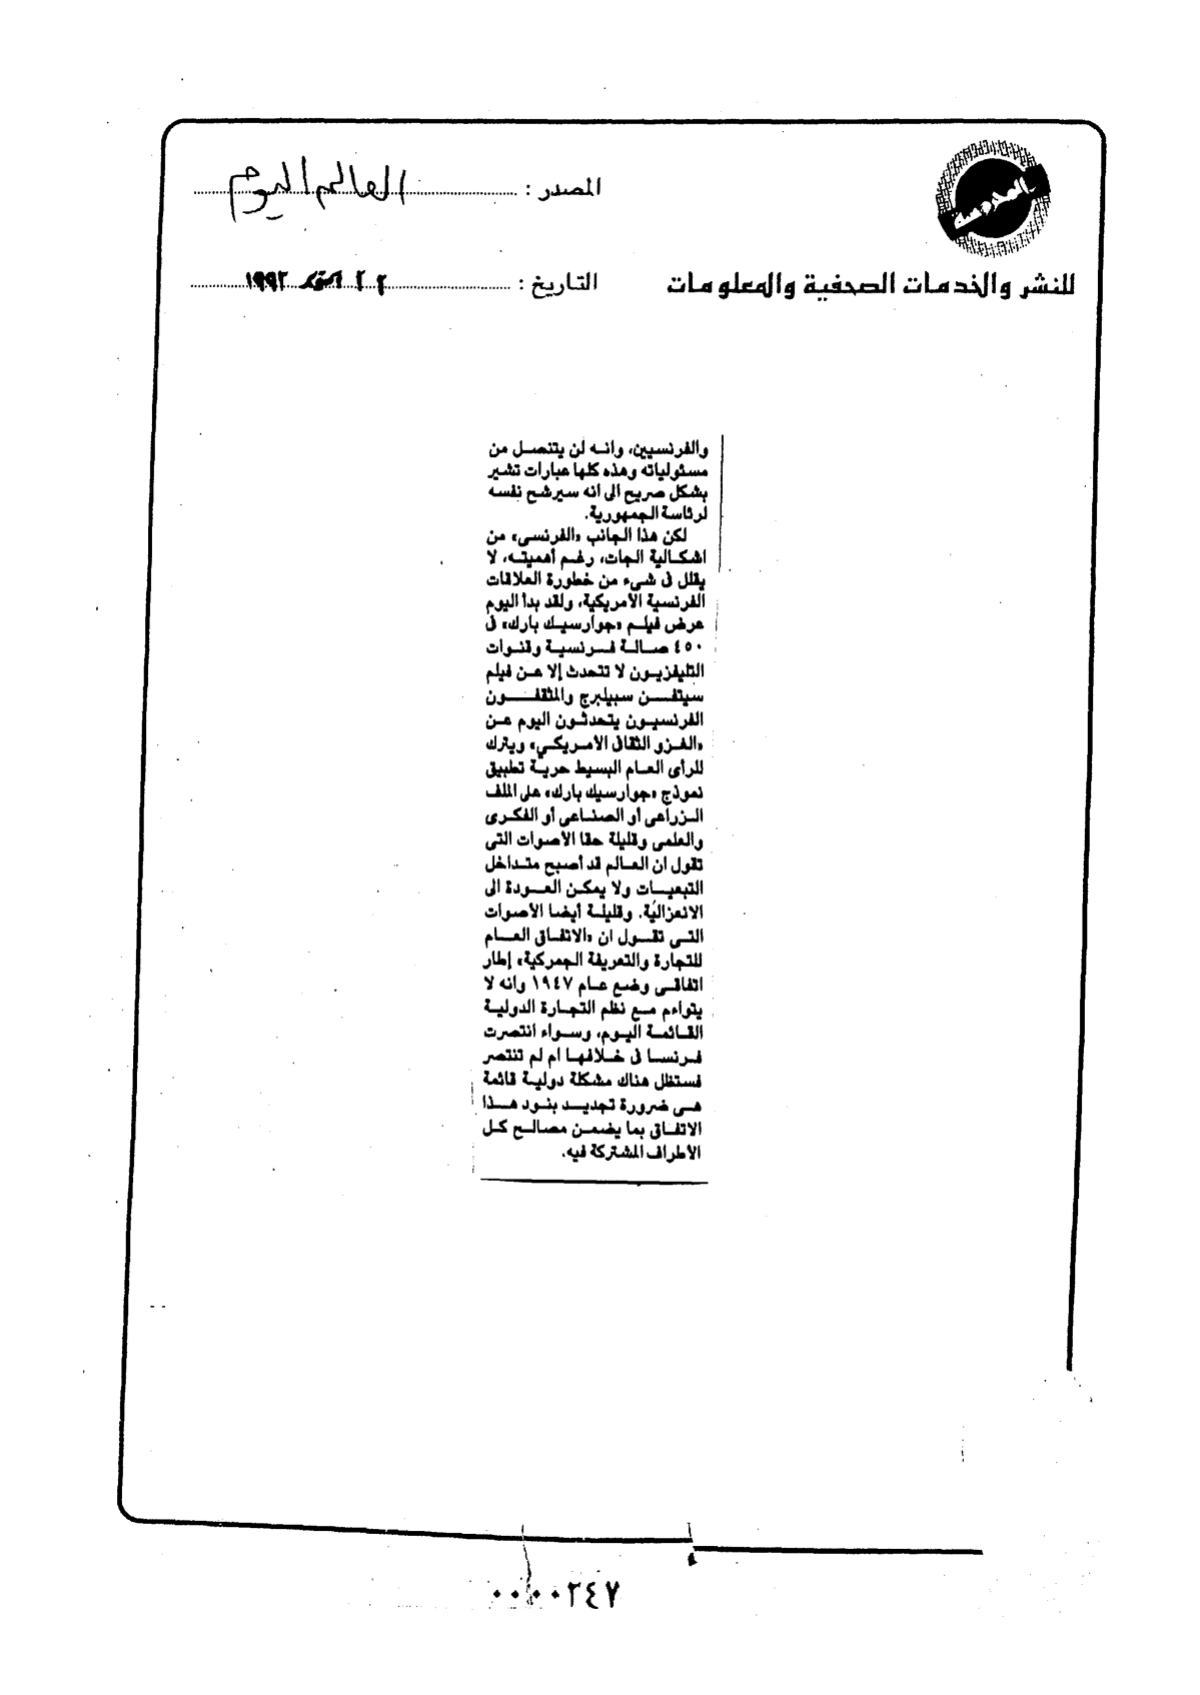 المصدر : العالم اليوم
للنشر والخدمات الصحفية والمعلومات
التاريخ : ٢٢ اكتوبر ١٩٩٣
والفرنسيين، وانه لن يتنصل من
مسئولياته وهذه كلها عبارات تشير
بشكل صريح الى انه سيرشح نفسه
لرئاسة الجمهورية.
لكن هذا الجانب «الفرنسى» من
اشكالية الجات، رغم أهميته، لا
يقلل فى شىء من خطورة العلاقات
الفرنسية الأمريكية، ولقد بدأ اليوم
عرض فيلم «جوارسيك بارك» فى
٤٥٠ صالة فرنسية وقنوات
التليفزيون لا تتحدث إلا عن فيلم
سيتفن سبيلبرج والمثقفون
الفرنسيون يتحدثون اليوم عن
«الغزو الثقافى الامريكي» ويترك
للرأى العام البسيط حرية تطبيق
نموذج «جوارسيك بارك» على الملف
الزراعى أو الصناعى أو الفكرى
والعلمى وقليلة حقا الأصوات التى
تقول ان العالم قد أصبح متداخل
التبعيات ولا يمكن العودة الى
الانعزالية. وقليلة أيضا الأصوات
التى تقول ان «الاتفاق العام
للتجارة والتعريفة الجمركية» إطار
اتفاقى وضع عام ١٩٤٧ وانه لا
يتواءم مع نظم التجارة الدولية
القائمة اليوم، وسواء انتصرت
فرنسا فى خلافها ام لم تنتصر
فستظل هناك مشكلة دولية قائمة
هى ضرورة تجديد بنود هذا
الاتفاق بما يضمن مصالح كل
الأطراف المشتركة فيه.
٠٠٠٠٢٤٧